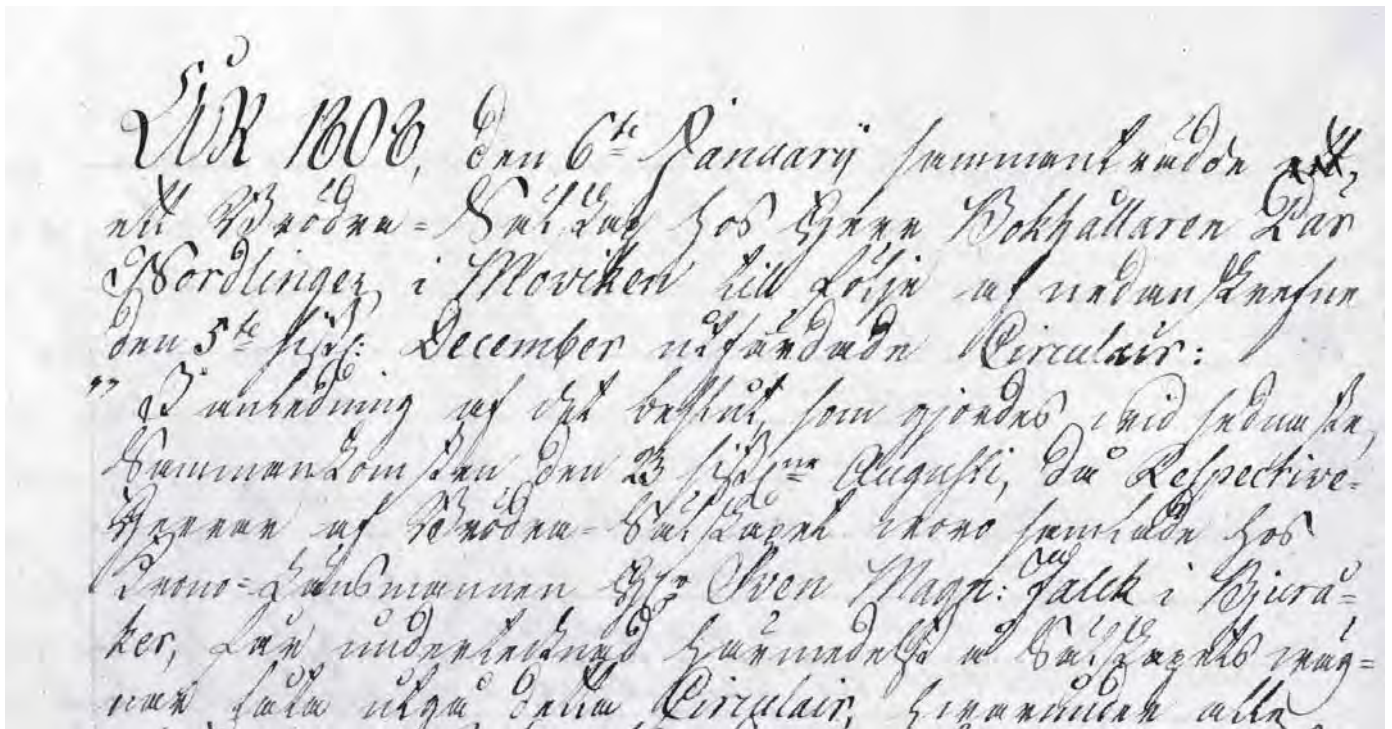 ÅR 1808, den 6te Januarij sammanträdde
ett Brödra=Sällskap hos Herr Bokhållaren Pär
Nordlinger i Moviken till följe af nedanskrefne
den 5te sistl: December utfärdade Circulair:
" I anledning af det beslut, som gjordes wid sednaste
Sammankomsten den 23 sistl:ne Augusti, då Respective
Herrar af Brödra=Sällskapet woro samlade hos
Krono=Länsmannen Hr Sven Magn: Falck i Bjurå=
ker, får undertecknad härmedelst å Sällskapets wäg=
nar låta utgå detta Circulair, hwarunder alle